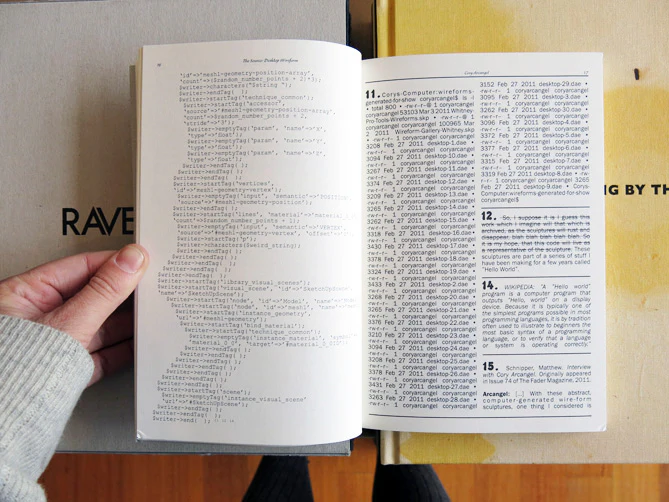 The Source: Desktop Wireform
"id"=>"mesh1-geometry-position-array",
"count"=>$random_number_points * 2)*3);
$writer->characters("$string ");
$writer->endTag( );
$writer->startTag("technique_common");
$writer->startTag("accessor",
"source"=>"#mesh1-geometry-position-array",
"count"=>$random_number_points * 2,
"stride"=>"3");
$writer->emptyTag("param", "name"=>"x",
"type"=>"float");
$writer->emptyTag("param",
"type"=>"float");
$writer->emptyTag("param",
"type"=>"float");
$writer->endTag( );
$writer->endTag( );
$writer->endTag( );
$writer->startTag("vertices",
"id"=>"#mesh1-geometry-vertex");
$writer->endTag( );
$writer->startTag("lines",
"count"=>$random_number_points
$writer->startTag("p");
$writer->endTag( );
$writer->endTag( );
$writer->endTag( );
$writer->startTag("library_visual_scenes");
$writer->startTag("instance_geometry",
$writer->startTag("bind_material");
$writer->startTag("technique_common");
$writer->endTag( );
$writer->endTag( );
$writer->endTag( );
$writer->startTag("scene");
$writer->emptyTag("instance_visual_scene"
$writer->endTag( );
$writer->endTag( );
Cory Arcangel
11. Corys-Computer:wireforms-
generated-for-show coryarcangel$ ls -l
• total 800 • -rw-r--r--@ 1 coryarcangel
coryarcangel 53103 Mar 3 2011 Whitney
Pro-Tools-Wireforms.skp • -rw-r--r--@ 1
coryarcangel coryarcangel 100965 Mar
2 2011 Wireform-Gallery-Whitney.skp
• -rw-r--r-- 1 coryarcangel coryarcangel
3208 Feb 27 2011 desktop-1.dae •
-rw-r--r-- 1 coryarcangel coryarcangel
3094 Feb 27 2011 desktop-10.dae •
-rw-r--r-- 1 coryarcangel coryarcangel
3267 Feb 27 2011 desktop-11.dae •
-rw-r--r-- 1 coryarcangel coryarcangel
3374 Feb 27 2011 desktop-12.dae •
-rw-r--r-- 1 coryarcangel coryarcangel
3209 Feb 27 2011 desktop-13.dae •
-rw-r--r-- 1 coryarcangel coryarcangel
3265 Feb 27 2011 desktop-14.dae •
-rw-r--r-- 1 coryarcangel coryarcangel
3262 Feb 27 2011 desktop-15.dae •
-rw-r--r-- 1 coryarcangel coryarcangel
3318 Feb 27 2011 desktop-16.dae •
-rw-r--r-- 1 coryarcangel coryarcangel
3430 Feb 27 2011 desktop-17.dae •
-rw-r--r-- 1 coryarcangel coryarcangel
3378 Feb 27 2011 desktop-18.dae •
-rw-r--r-- 1 coryarcangel coryarcangel
3324 Feb 27 2011 desktop-19.dae •
-rw-r--r-- 1 coryarcangel coryarcangel
3433 Feb 27 2011 desktop-2.dae •
-rw-r--r-- 1 coryarcangel coryarcangel
3268 Feb 27 2011 desktop-20.dae •
-rw-r--r-- 1 coryarcangel coryarcangel
3265 Feb 27 2011 desktop-21.dae •
-rw-r--r-- 1 coryarcangel coryarcangel
3376 Feb 27 2011 desktop-22.dae •
-rw-r--r-- 1 coryarcangel coryarcangel
3210 Feb 27 2011 desktop-23.dae •
-rw-r--r-- 1 coryarcangel coryarcangel
3094 Feb 27 2011 desktop-24.dae •
-rw-r--r-- 1 coryarcangel coryarcangel
3208 Feb 27 2011 desktop-25.dae •
-rw-r--r-- 1 coryarcangel coryarcangel
3378 Feb 27 2011 desktop-26.dae •
-rw-r--r-- 1 coryarcangel coryarcangel
3431 Feb 27 2011 desktop-27.dae •
-rw-r--r-- 1 coryarcangel coryarcangel
3263 Feb 27 2011 desktop-28.dae •
-rw-r--r-- 1 coryarcangel coryarcangel
3152 Feb 27 2011 desktop-29.dae •
-rw-r--r-- 1 coryarcangel coryarcangel
3095 Feb 27 2011 desktop-3.dae •
-rw-r--r-- 1 coryarcangel coryarcangel
3262 Feb 27 2011 desktop-30.dae •
-rw-r--r-- 1 coryarcangel coryarcangel
3096 Feb 27 2011 desktop-4.dae •
-rw-r--r-- 1 coryarcangel coryarcangel
3372 Feb 27 2011 desktop-5.dae •
-rw-r--r-- 1 coryarcangel coryarcangel
3377 Feb 27 2011 desktop-6.dae •
-rw-r--r-- 1 coryarcangel coryarcangel
3315 Feb 27 2011 desktop-7.dae •
-rw-r--r-- 1 coryarcangel coryarcangel
3319 Feb 27 2011 desktop-8.dae •
-rw-r--r-- 1 coryarcangel coryarcangel 3265
Feb 27 2011 desktop-9.dae • Corys-
Computer:wireforms-generated-for-show
coryarcangel$
12. -So, I suppose it is I guess this
work which I imagine will that which is
archived, as the sculptures will rust and
disappear, blah blah blah blah blah. So
it is my hope, that this code will live as
a representative of the sculpture. These
sculptures are part of a series of stuff I
have been making for a few years called
"Hello World".
14. WIKIPEDIA: "A "Hello world"
program is a computer program that
outputs "Hello, world" on a display
device. Because it is typically one of
the simplest programs possible in most
programming languages, it is by tradition
often used to illustrate to beginners the
most basic syntax of a programming
language, or to verify that a language
or system is operating correctly."
15. Schnipper, Matthew. Interview
with Cory Arcangel. Originally appeared
in Issue 74 of The Fader Magazine, 2011.
Arcangel: [...] With these abstract,
computer-generated wire-form
sculptures, one thing I considered is
RAVE
NG BY TH